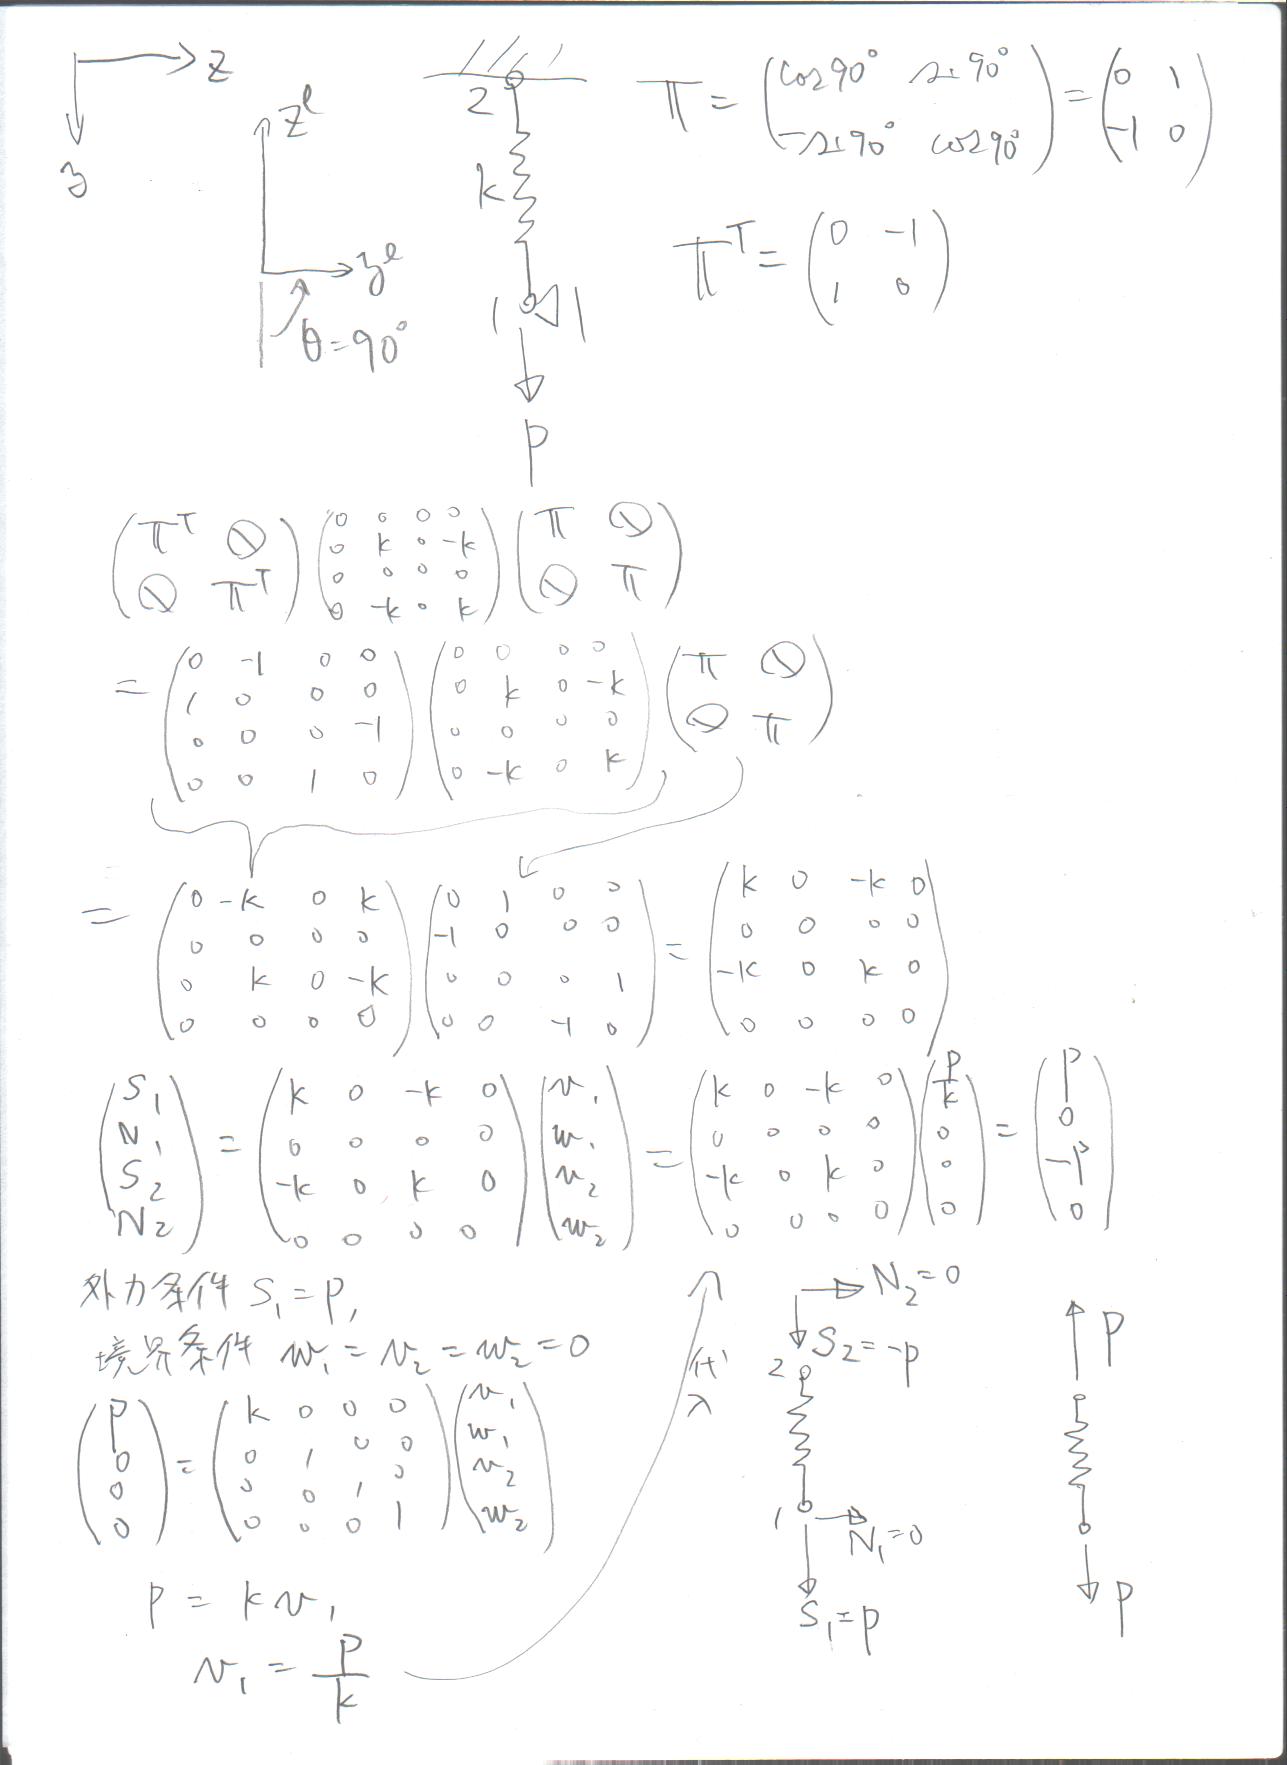 z
y
z^l
y^l
θ=90°
2
k
1
P
T = (cos90° sin90° / -sin90° cos90°) = (0 1 / -1 0)
T^T = (0 -1 / 1 0)
(T^T O / O T^T) (0 0 0 0 / 0 k 0 -k / 0 0 0 0 / 0 -k 0 k) (T O / O T)
= (0 -1 0 0 / 1 0 0 0 / 0 0 0 -1 / 0 0 1 0) (0 0 0 0 / 0 k 0 -k / 0 0 0 0 / 0 -k 0 k) (T O / O T)
= (0 -k 0 k / 0 0 0 0 / 0 k 0 -k / 0 0 0 0) (0 1 0 0 / -1 0 0 0 / 0 0 0 1 / 0 0 -1 0) = (k 0 -k 0 / 0 0 0 0 / -k 0 k 0 / 0 0 0 0)
(S1 / N1 / S2 / N2) = (k 0 -k 0 / 0 0 0 0 / -k 0 k 0 / 0 0 0 0) (v1 / w1 / v2 / w2) = (k 0 -k 0 / 0 0 0 0 / -k 0 k 0 / 0 0 0 0) (P/k / 0 / 0 / 0) = (P / 0 / -P / 0)
外力条件 S1=P,
境界条件 w1=v2=w2=0
(P / 0 / 0 / 0) = (k 0 0 0 / 0 1 0 0 / 0 0 1 0 / 0 0 0 1) (v1 / w1 / v2 / w2)
P = k v1
v1 = P/k
代入
N2=0
S2=-P
2
1
N1=0
S1=P
P
P